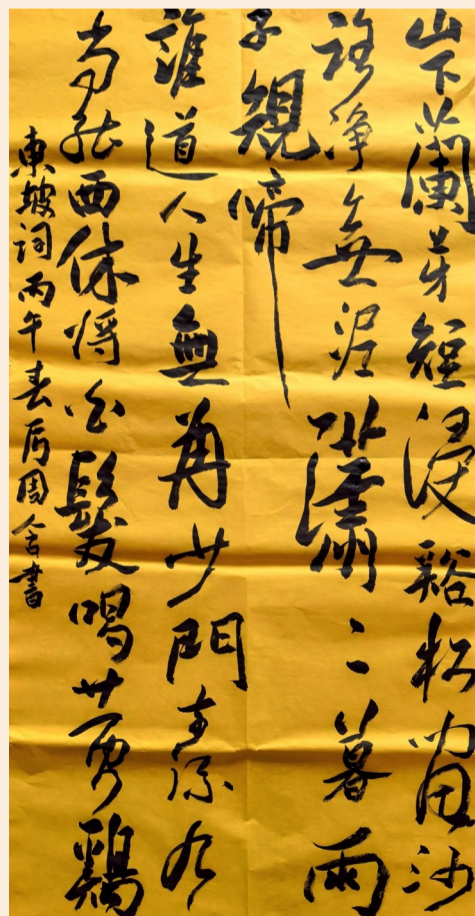 山下蘭芽短浸谿松間沙
路淨無泥瀟〻暮雨
子規啼
誰道人生無再少門前流水
尚能西休將白髮唱黃鷄
東坡詞丙午春周書